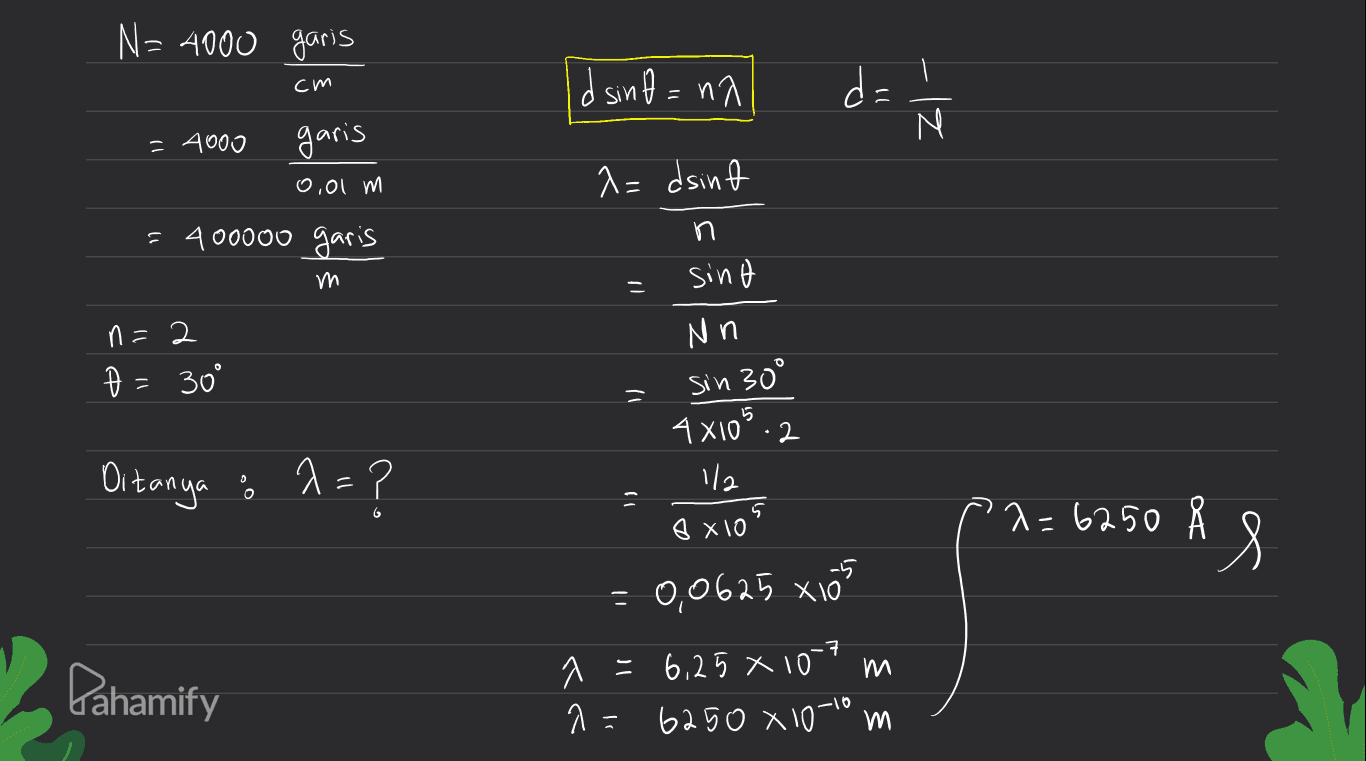 N = 4000 garis
cm
= 4000 garis
0,01 m
= 400000 garis
m
n = 2
θ = 30°
Ditanya : λ = ?
d sin θ = nλ
d = 1
N
λ = d sin θ
n
= sin θ
N n
= sin 30°
4 x 10⁵ . 2
= 1/2
8 x 10⁵
= 0,0625 x 10⁻⁵
λ = 6,25 x 10⁻⁷ m
λ = 6250 x 10⁻¹⁰ m
λ = 6250 Å
Pahamify